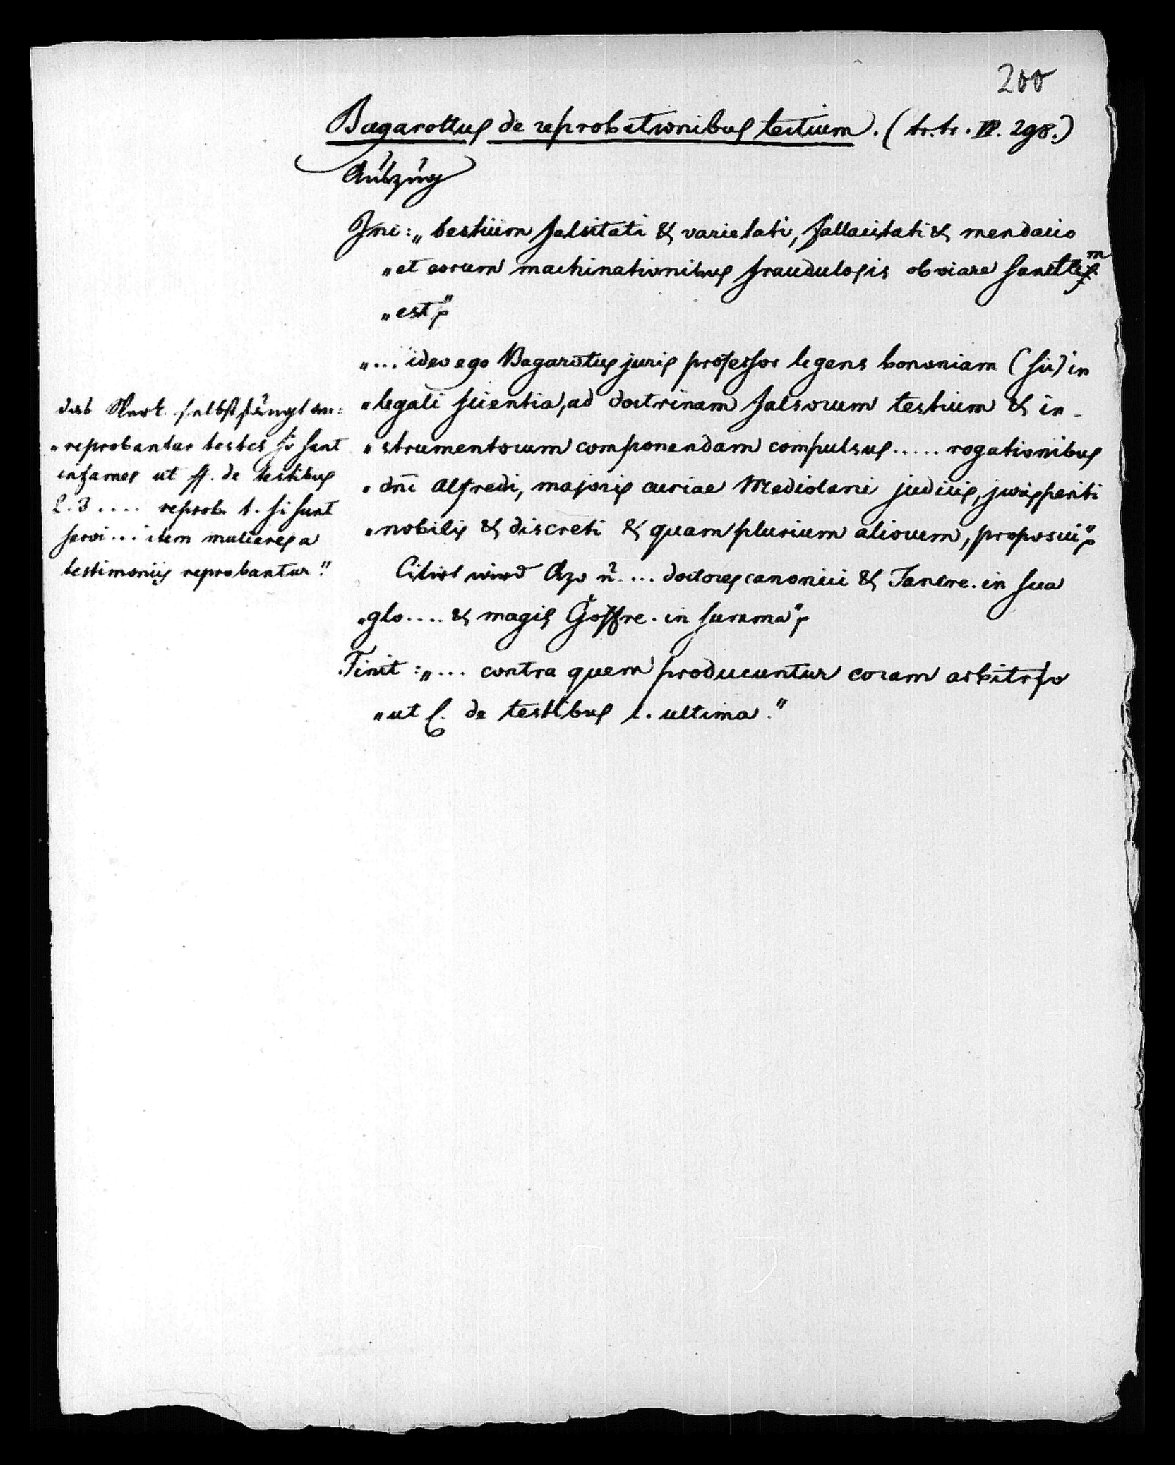 200
Bagarottus de reprobationibus testium. (tr. tr. IV. 298.)
Auszug
Ini: „testium falsitati & varietati, fallacitati & mendacio
„et eorum machinationibus fraudulosis obviare sanctissm
„est“,
„... ideo ego Bagarotus juris professor legens bononiam (sic) in
„legali scientia, ad doctrinam falsorum testium & in-
„strumentorum componendam compulsus ..... rogationibus
„dni Alfredi, majoris curiae Mediolani judicis, jurisperiti
„nobilis & discreti & quam plurium aliorum, proposui“,
Citirt wird Azo u. .... doctores canonici & Tancre. in sua
„glo.... & magis Goffre. in summa“,
Finit: „... contra quem producuntur coram arbitro
„ut C. de testibus l. ultima.“
das Werk selbst fängt an:
„reprobantur testes si sunt
infames ut ff. de testibus
L. 3 .... reprob. t. si sunt
servi ... item mulieres a
testimoniis reprobantur“